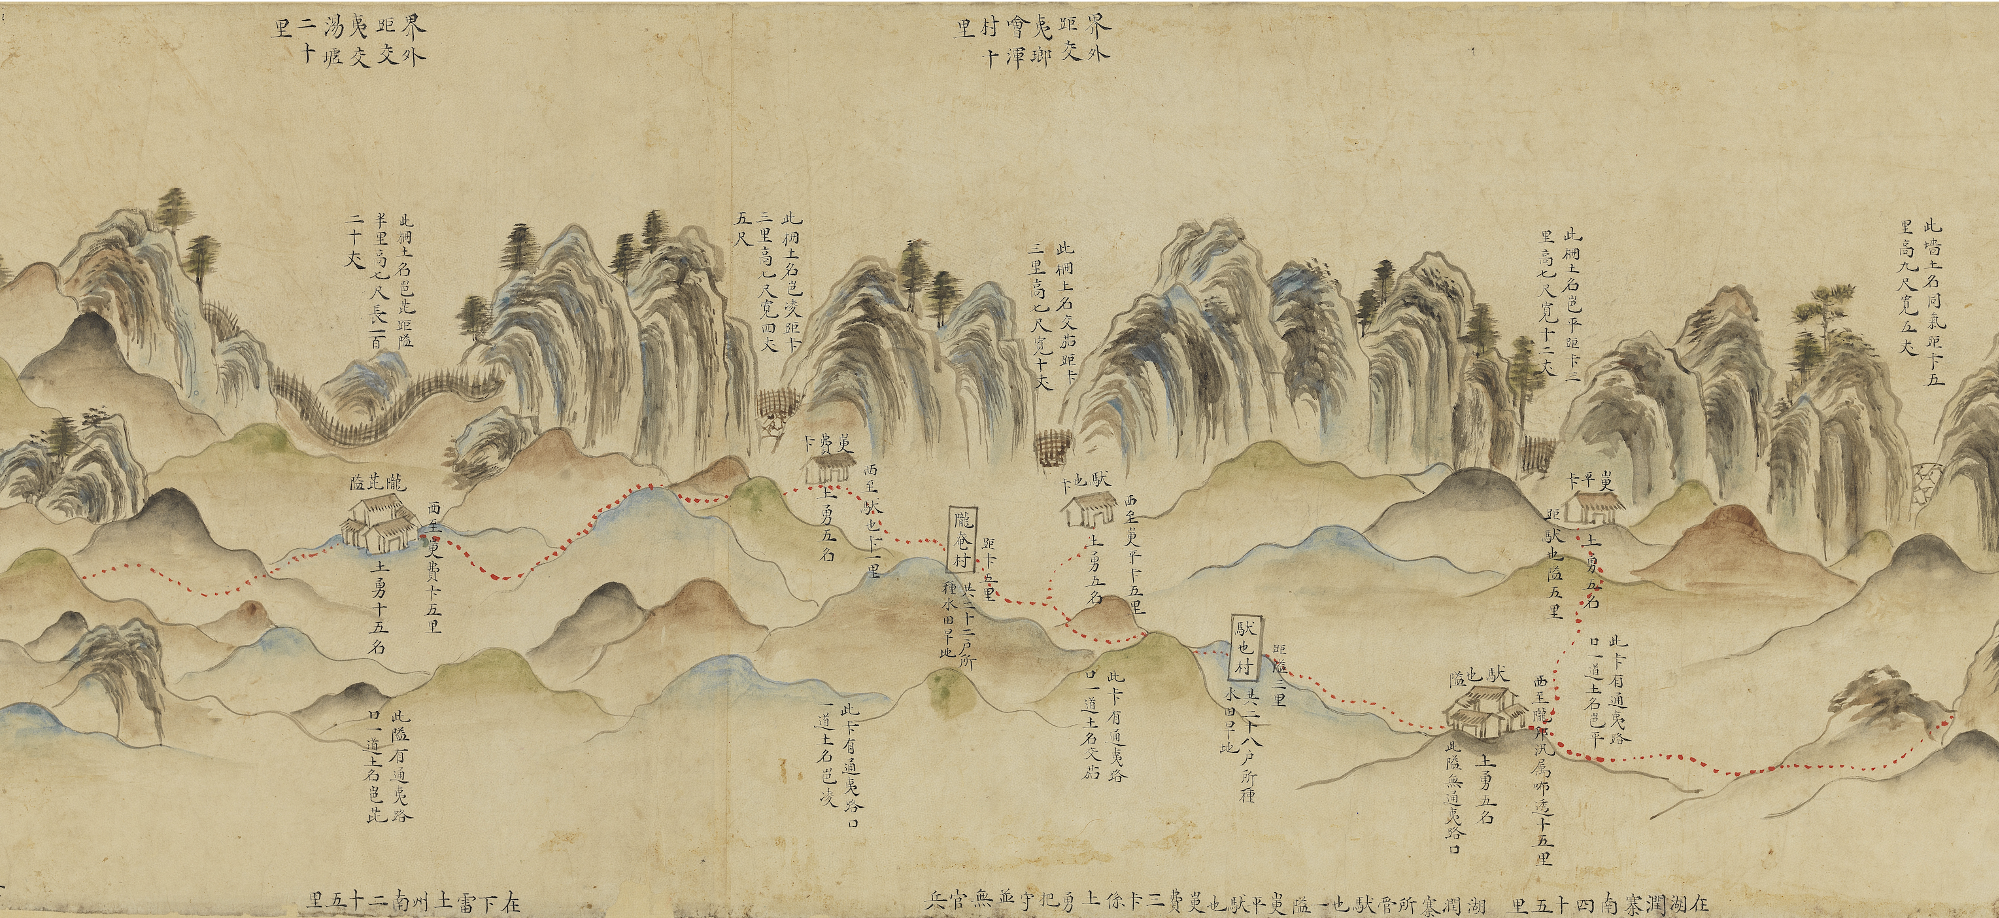 界外
距交
夷瑯
會渾
村十
里
界外
距交
夷交
湯墟
二十
里
此墻土名同氣距卡五
里高九尺寛五丈
此柵土名岜平距卡三
里高七尺寛十二丈
此柵土名交茄距卡
三里高七尺寛十丈
此柵土名岜凌距卡
三里高七尺寛四丈
五尺
此柵土名岜茈距隘
半里高七尺長一百
二十丈
平卡
土勇五名
距馱也隘五里
此卡有通夷路
口一道土名岜平
馱也隘
土勇五名
此隘無通夷路口
西至隴
汛属
十五里
馱也卡
土勇五名
西至
平卡五里
此卡有通夷路
口一道土名交茄
馱也村
距隘三里
共二十八户所種
水田旱地
費卡
土勇五名
西至馱也卡一里
此卡有通夷路口
一道土名岜凌
隴巷村
距卡五里
共二十二户所
種水田旱地
隴茈隘
土勇十五名
西至
費卡五里
此隘有通夷路
口一道土名岜茈
在湖潤寨南四十五里
湖潤寨所管馱也一隘
平馱也
費三卡係土勇把守並無官兵
在下雷土州南二十五里